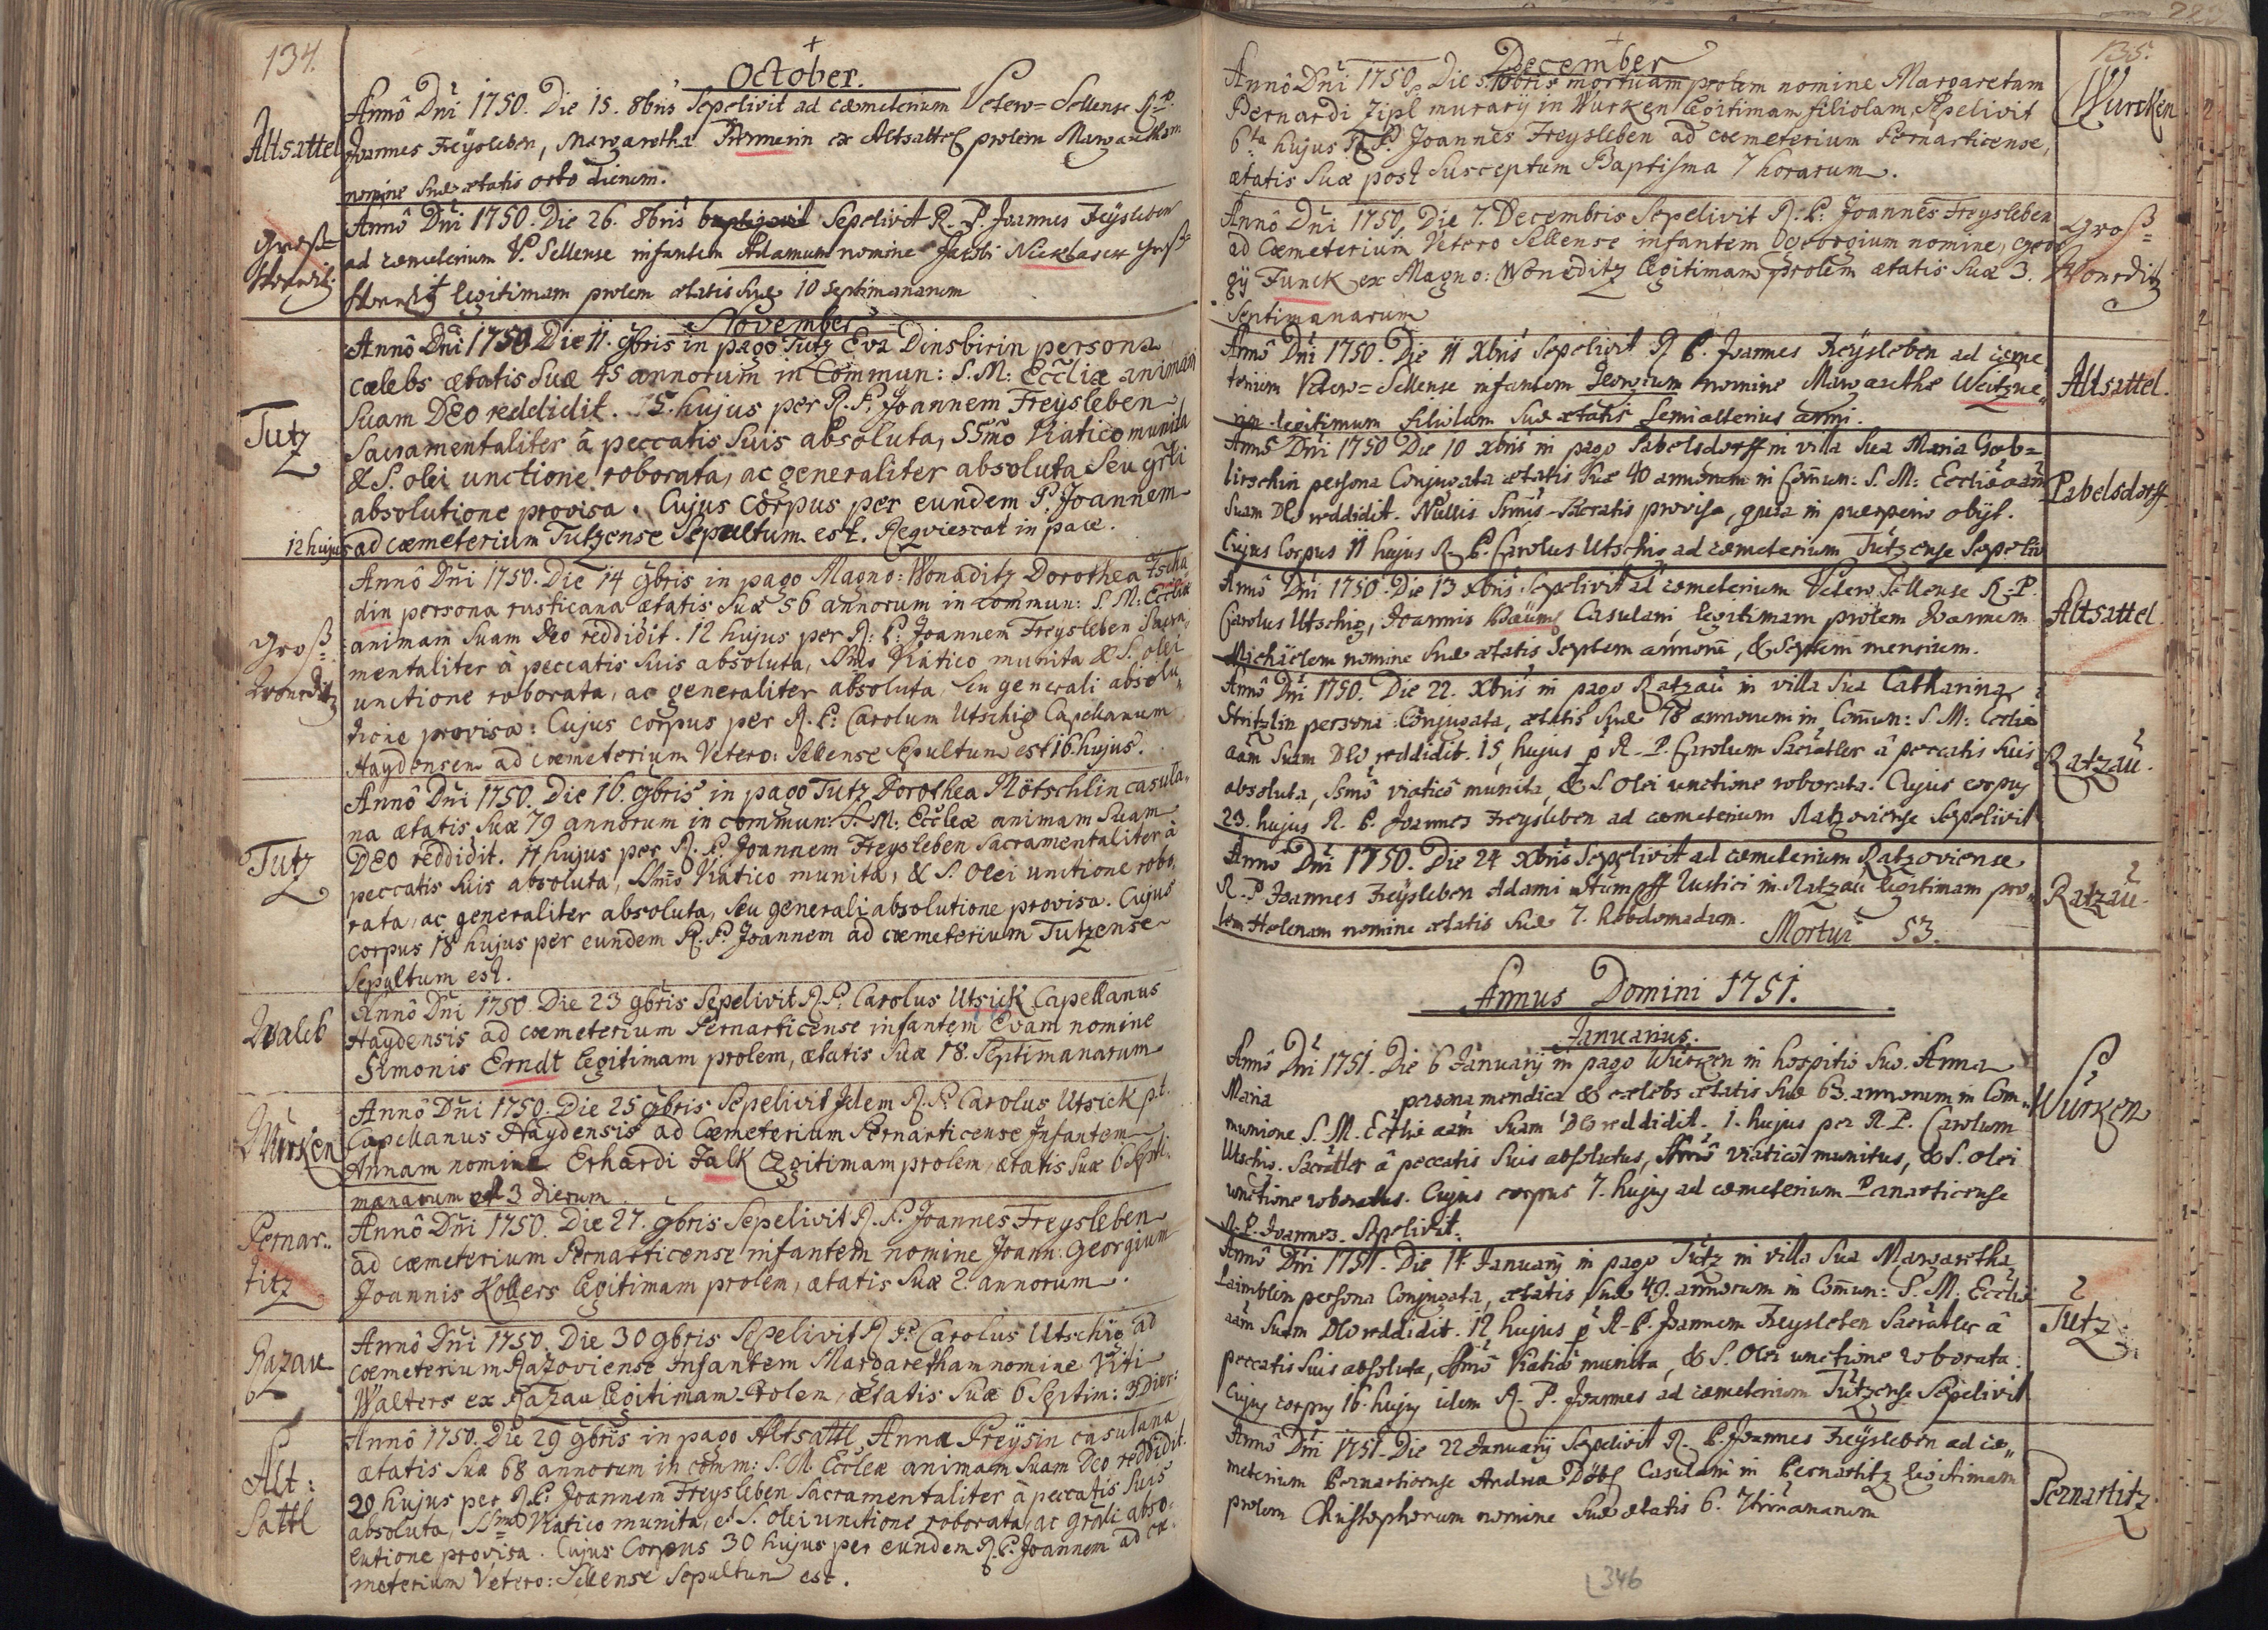 134.
October.
Altsattel
Annô Dni 1750. Die 15. 8bris Sepelivit ad cæmeterium Vetero=Sellense R. P.
Joannes Freÿsleben, Margaretha ex Altsattel prolem Margaretham
nomine Suæ ætatis octo dierum.
Groß=
Anno Dni 1750. Die 26. 8bris Sepelivit R. P. Joannes Freÿsleben
ad cæmeterium V. Sellense infantem Adamum nomine Jacobi
legitimam prolem ætatis Suæ 10 septimanarum
November
Annô Dni 1750 Die 11. 9bris in pago Tutz Eva Dinsbirin persona
cælebs ætatis Suæ 45 annorum in Commun: S. M: Eccliæ animam
Suam DEo reddidit. hujus per R. P. Joannem Freÿsleben
Tutz
Sacramentaliter â peccatis Suis absoluta, SSmo Viatico munita
& S. olei unctione roborata, ac generaliter absoluta Seu grli
absolutione provisa. Cujus Corpus per eundem P. Joannem
12 hujus ad cæmeterium Tutzense Sepultum est. Reqviescat in pace.
Annô Dni 1750. Die 14 9bris in pago Magno: Wonaditz Dorothea Tscha
din persona rusticana ætatis Suæ 56 annorum in commun: S. M: Eccliæ
animam Suam Deo reddidit. 12 hujus per R: P: Joannem Freysleben Sacra,,
Groß=
Woneditz
mentaliter â peccatis Suis absoluta, SSmo Viatico munita & S. olei
unctione roborata, ac generaliter absoluta, Seu generali absolu,,
tione provisa: Cujus corpus per R. P: Carolum Utschig Capellanum
Haydensem ad cæmeterium Vetero: Sellense Sepultum est 16 hujus.
Annô Dni 1750. Die 16. 9bris in pago Tutz Dorothea Nötschlin casula,,
na ætatis Suæ 79 annorum in commun: S. M: Eccleæ animam Suam
Tutz
DEO reddidit. 17 hujus per R. P. Joannem Freÿsleben Sacramentaliter â
peccatis Suis absoluta, SSmo Viatico munita, & S. Olei unctione robo,,
rata, ac generaliter absoluta, Seu generali absolutione provisa. Cujus
corpus 18 hujus per eundem R. P. Joannem ad cæmeterium Tutzense
Sepultum est.
Waleb
Annô Dni 1750. Die 23 9bris Sepelivit R P: Carolus Utsick Capellanus
Haydensis ad cæmeterium Pernarticense infantem Evam nomine
Simonis Erndt legitimam prolem, ætatis Suæ 18. Septimanarum
Würken
Annô Dni 1750. Die 25 9bris Sepelivit Idem R. P. Carolus Utsick p.t.
Capellanus Haydensis ad Cæmeterium Pernarticense Infantem
Annam nomine Erhardi Falk Legitimam prolem, ætatis Suæ 6 Septi,,
manarum et 3 dierum.
Pernar..
titz
Annô Dni 1750. Die 27. 9bris Sepelivit R. P. Joannes Freysleben
ad cæmeterium Pernarticense infantem nomine Joann: Georgium
Joannis Kollers Legitimam prolem, ætatis Suæ 2. annorum.
Razau
Annô Dni 1750. Die 30 9bris Sepelivit R P. Carolus Utschig ad
cæmeterium Razoviense Infantem Margaretham nomine Viti
Walters ex Razau Legitimam Prolem, ætatis Suæ 6 Septim: 3 Dier:
Alt:
Sattl
Annô 1750. Die 29 9bris in pago Altsattl Anna Preysin casulana
ætatis Suæ 68 annorum in comm: S. M. Eccleæ animam Suam Deo reddidit.
29 hujus per R. P: Joannem Freysleben Sacramentaliter â peccatis Suis
absoluta, SSmo Viatico munita, et S. olei unctione roborata, ac grali abso=
lutione provisa. Cujus Corpus 30 hujus per eundem R. P. Joannem ad cæ=
meterium Vetero: Sellense Sepultum est.
135.
December
Annô Dni 1750. Die 5. Xbris mortuam prolem nomine Margaretam
Bernardi Zipl murarij in Würken Legitimam filiolam, Sepelivit
6ta hujus R. P. Joannes Freysleben ad cæmeterium Pernarticense,
ætatis Suæ post Susceptum Baptisma 7 horarum.
Wurcken
Annô Dni 1750. Die 7. Decembris Sepelivit R. P: Joannes Freysleben
ad Cæmeterium Vetero Sellense infantem Georgium nomine, Geor
gij Funck ex Magno: Woneditz legitimam prolem ætatis Suæ 3.
Septimanarum
Groß=
Woneditz
Annô Dni 1750. Die 11 Xbris Sepelivit R P. Joannes Freÿsleben ad cæme
terium Vetero=Sellense infantem Georgium nomine Margarethæ Weitzne,,
rin legitimum filiolum Suæ ætatis Semialterius anni.
Altsattel.
Annô Dni 1750 Die 10 xbris in pago Pabelsdorff in villa Sua Maria Gob=
lirschin persona Conjugata ætatis Suæ 40 annorum in Comun: S. M: Eccliæ aam
Suam DEo reddidit. Nullis Ssmis Sacratis provisa, quia in puerperio obijt.
Cujus Corpus 11 hujus R. P. Carolus Utschig ad cæmeterium Tutzense Sepeliv
Pabelsdorff
Annô Dni 1750. Die 13 xbris Sepelivit ad cæmeterium Vetero Sellense R. P.
Carolus Utschig, Joannis Casulani legitimam prolem Joannem
Michäelem nomine Suæ ætatis Septem annorũ, & Septem mensium.
Altsattel
Annô Dni 1750. Die 22. Xbris in pago Ratzau in villa Sua Catharina
Stritzlin persona Conjugata, ætatis Suæ 78 annorum in Comun: S. M: Ecclie
aam Suam DEo reddidit. 15, hujus p R. P. Carolum Sacratler â peccatis Suis
absoluta, Ssmô viaticô munita, & S. Olei unctione roborata. Cujus corpus
23. hujus R. P. Joannes Freÿsleben ad cæmeterium Ratzoviense Sepelivit
Ratzau.
Annô Dni 1750. Die 24 xbris Sepelivit ad cæmeterium Ratzoviense
R. P Joannes Freÿsleben Adami Stumpff Rustici in Ratzau legitimam pro,,
lem Helenam nomine ætatis Suæ 7. hebdomadum.
Mortui 53.
Ratzau
Annus Domini 1751.
Januarius.
Annô Dni 1751. Die 6 Januarij in pago Würken in hospitio Suo Anna
Maria persona mendica & cælebs ætatis Suæ 63. annorum in Com,,
munione S. M. Eccliæ aam Suam DEo reddidit. 1. hujus per R. P. Carolum
Utschig. Sacratler â peccatis Suis absolutus, Ssmô viaticô munitus, & S. Olei
unctione roboratus. Cujus corpus 7. hujus ad cæmeterium Panarticense
R. P. Joannes Sepelivit.
Würken
Annô Dni 1751. Die 14 Januarij in pago Tutz in villa Sua Margaretha
Laimblin persona Conjugata, ætatis Suæ 49. annorum in Comun: S. M. Eccliæ
aam Suam DEo reddidit. 12 hujus p R. P. Joannem Freysleben Sacratler â
peccatis Suis absoluta, Ssmô Viaticô munita, & S. Olei unctione roborata.
Cujus corpus 16. hujus idem R. P. Joannes ad cæmeterium Tutzense Sepelivit
Tutz
Annô Dni 1751. Die 22 Januarij Sepelivit R. P. Joannes Freÿsleben ad cæ,,
meterium Bernarticense Andreæ Casulani in Bernartitz legitimam
prolem Christophorum nomine Suæ ætatis 6.
Pernartitz
346